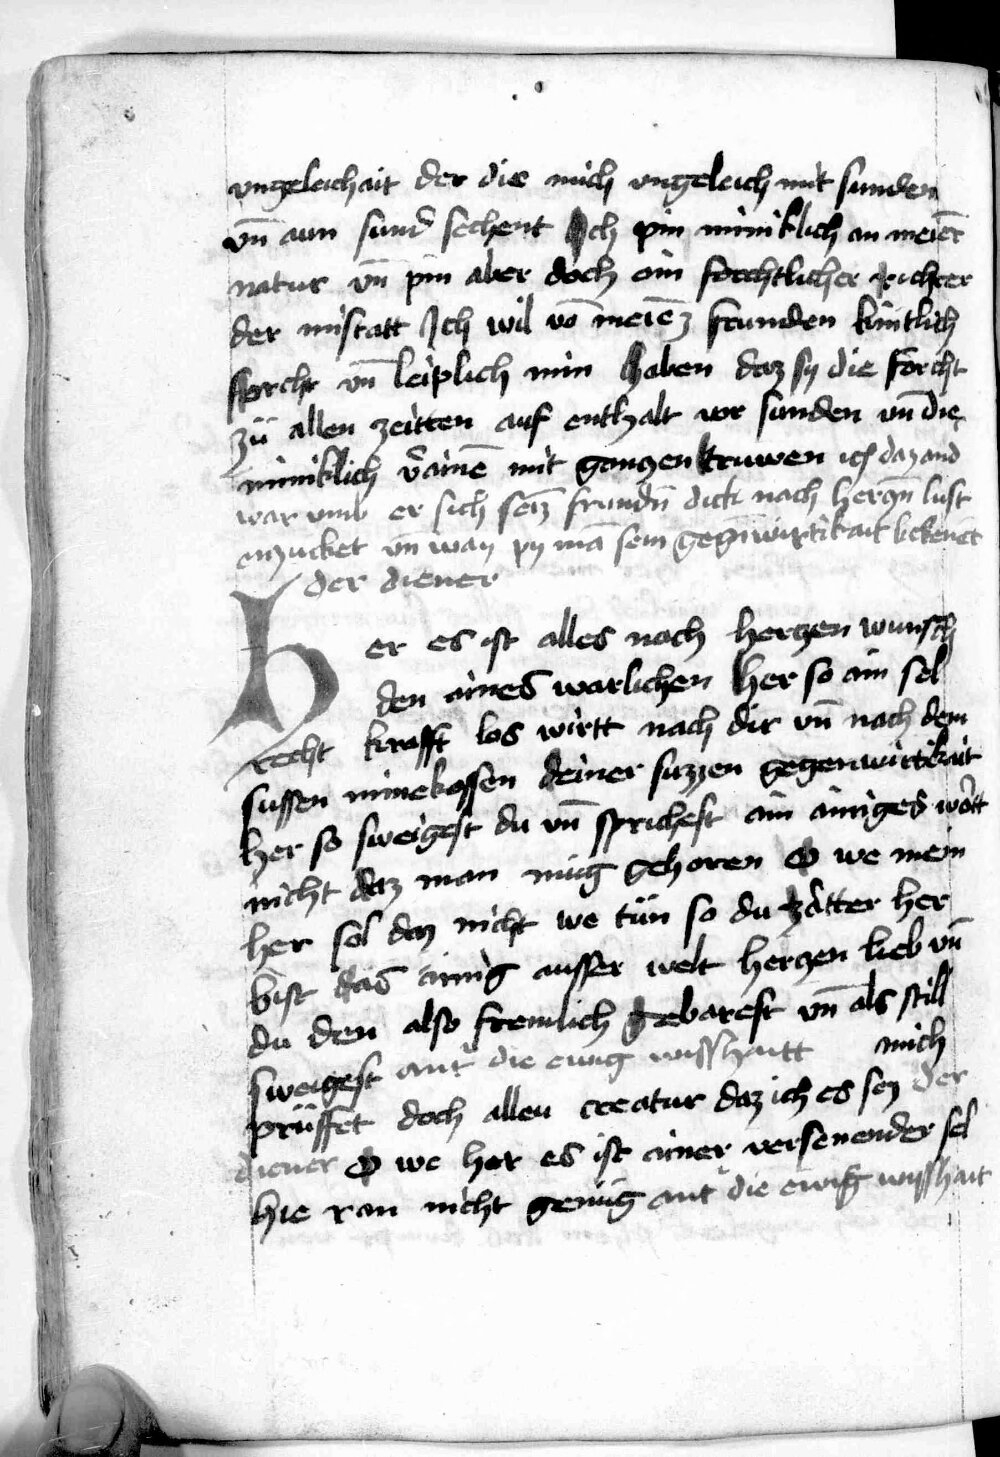 vngeleichait der die mich vngeleich mit sunden
vn̄ aun sund sechent Ich pin miniklich an meiēr
natur vn̄ pin aber doch ain forchtlicher Richter
der mistatt Ich wil vō meiēz frunden kintlich
forcht vn̄ leiplich min haben daz sy die forcht
zü allen zeitten auf enthalt vor sunden vn̄ die
miniklich v̄ainē mit ganczen truwen ich daz and
war vmb er sich seiz frundn̄ dick nach herczn̄ lust
enzucket vn̄ way py mā sein gegn̄wirtikait bekenēt
der diener
Her es ist alles nach herczen wunsch
den aines warlichen her so ain sel
recht krafft los wirtt nach dir vn̄ nach dem
sussen minekossen deiner suzzen gegenwirtikait
her so sweigest du vn̄ sprichest ain ainiges wort
nicht daz man mug gehoren O we mein
her sol daz nicht we tün so du zartter her
bist das ainig ausser welt herczen lieb vn̄
du den also fremlich gebarest vn̄ als still
sweigest ant' die ewig wisshaitt mich
prüffet doch alleu creatur daz ich es sey der
diener O we her es ist ainer versenender sel
hie ran nicht genug ant' die ewig wisshait